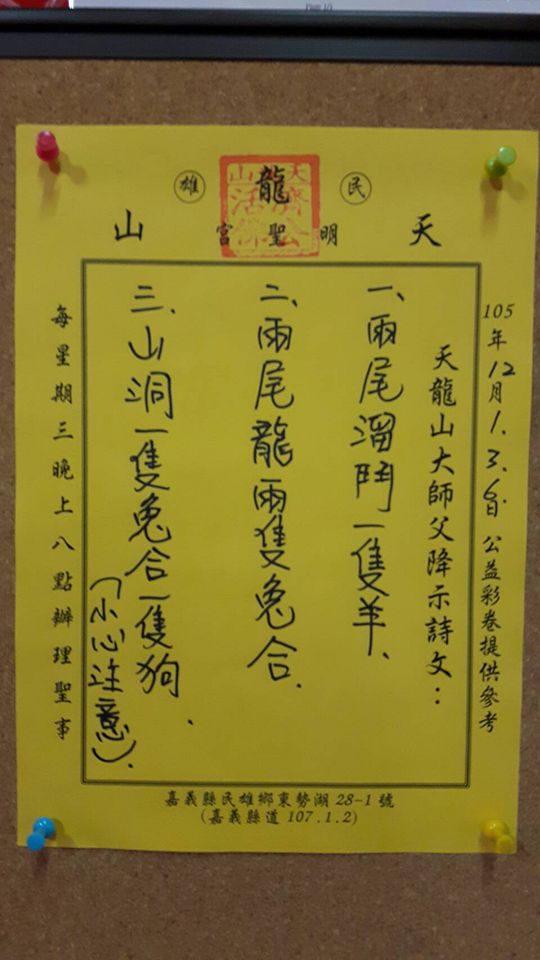 民 雄
天龍山
明聖宮
天山
濟公
活佛
105年12月1.3.6日公益彩卷提供參考
天龍山大師父降示詩文：
一、兩尾溜鬥一隻羊.
二、兩尾龍兩隻兔合.
三、山洞一隻兔合一隻狗.
(小心注意).
每星期三晚上八點辦理聖事
嘉義縣民雄鄉東勢湖 28-1 號
(嘉義縣道 107.1.2)